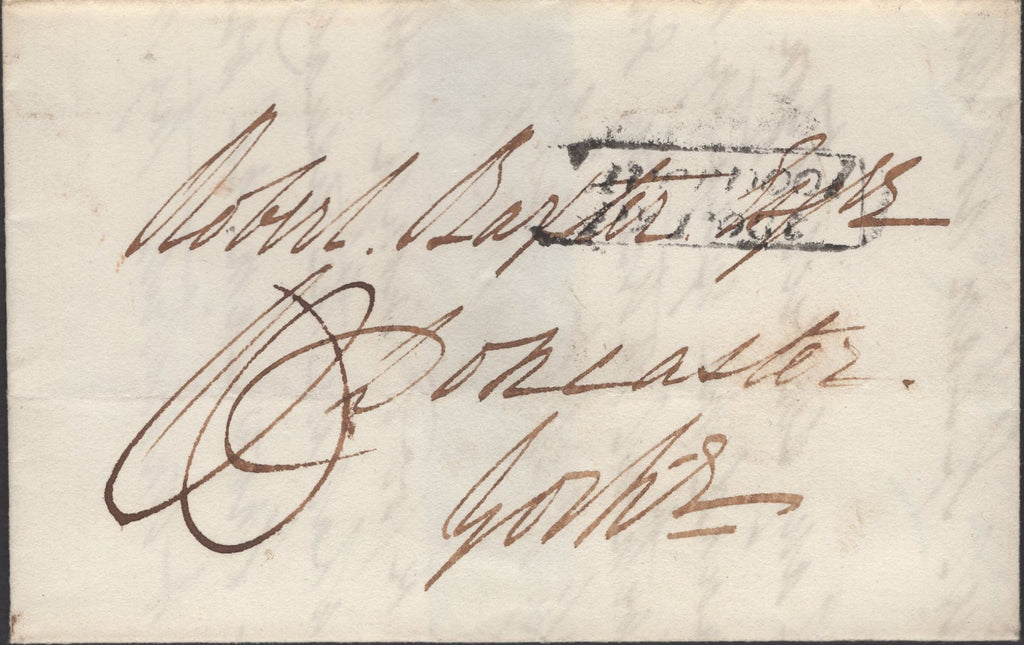 Robert. Baxter Esqre
Doncaster.
Yorkre